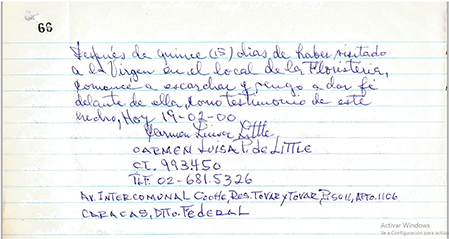 66
Después de quince (15) dias de haber visitado
a la Virgen en el local de la Floristeria,
comencé a escarchar y vengo a dar fé
delante de ella, como testimonio de este
hecho, Hoy 19-02-00
Carmen Little
CARMEN LUISA P. de LITTLE
C.I. 993.450
TLF. 02-681.5326
AV. INTERCOMUNAL Coche, Res. TOVAR y TOVAR, APTO. 1106
CARACAS, DTTO. FEDERAL
Activar Windows
Ve a Configuración para activar